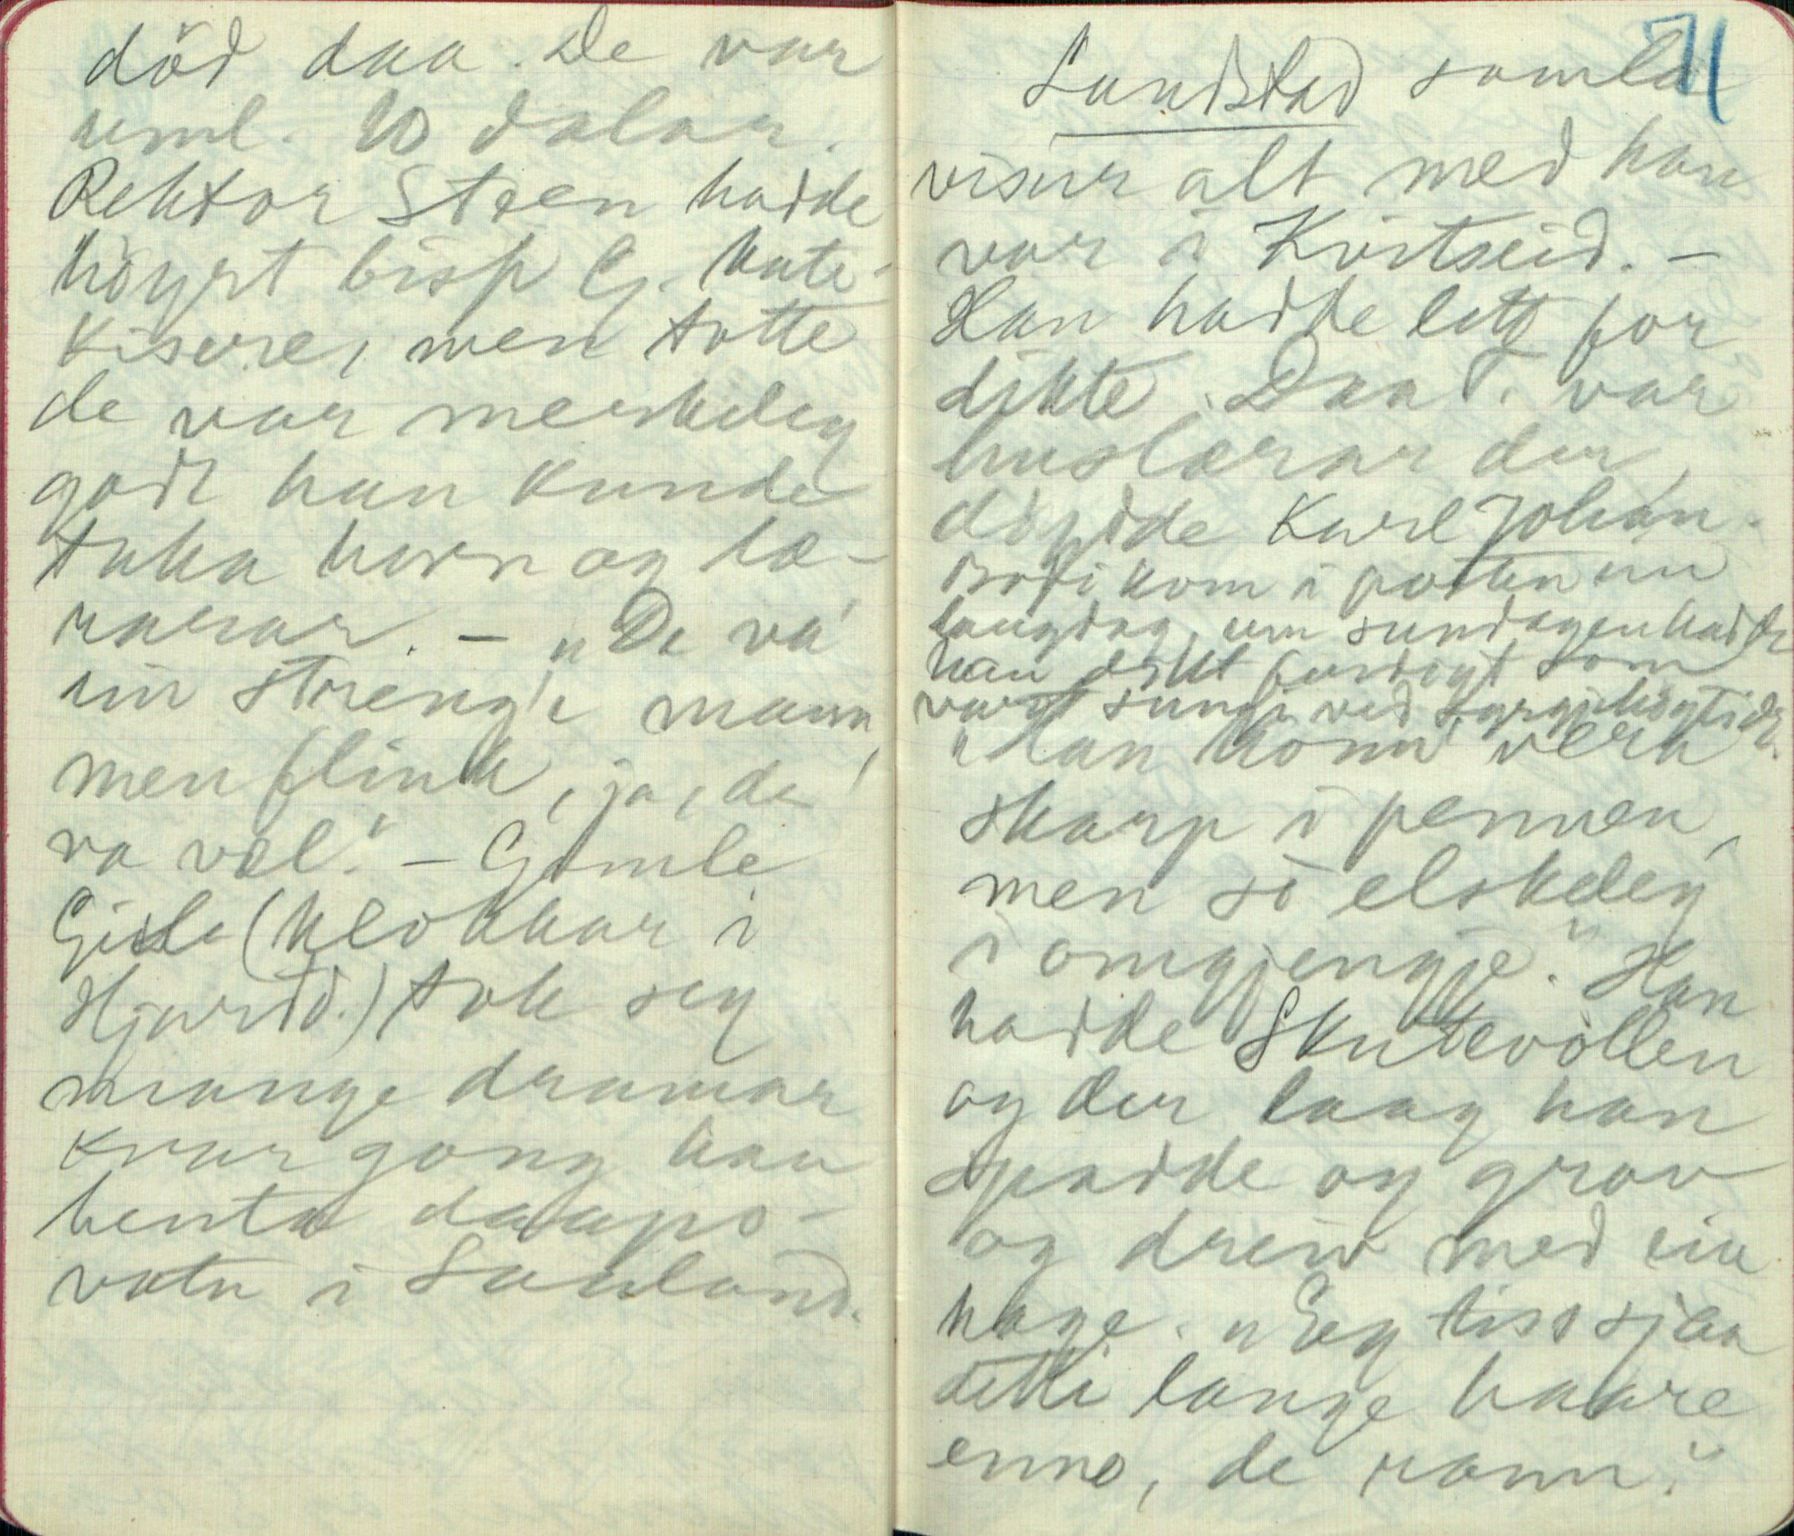 död daa. De var
uml. 10 dalar.
Rektor Steen hadde
höyrt bisp G. kate-
kisere, men totte
de var merkeleg
godt han kunde
taka born og læ-
rarar. – "De va'
ein streng'e mann,
men flink, ja, de
va væl." – Gamle
Gisle (klokkar i
Hjartd.) tok seg
mange dramar
kvar gong han
henta daaps-
vatn i Sauland.
71
Landstad samla
visur alt med han
var i Kvitseid. –
Han hadde lett for
dikte. Daa T. var
huslærar der,
döydde Karl Johan.
Bod i kom i posten ein
laugdag, um sundagen hadde
han dikt ferdigt som
vart sungi ved syrgjehögtide.
"Han konn' vera
skarp i pennen,
men so elskeleg
i omgjengje." Han
hadde Skutevollen
og der laag han
spadde og grov
og dreiv med ein
hage. "Eg tiss sjaa
detti lange haare
enno, de rann."